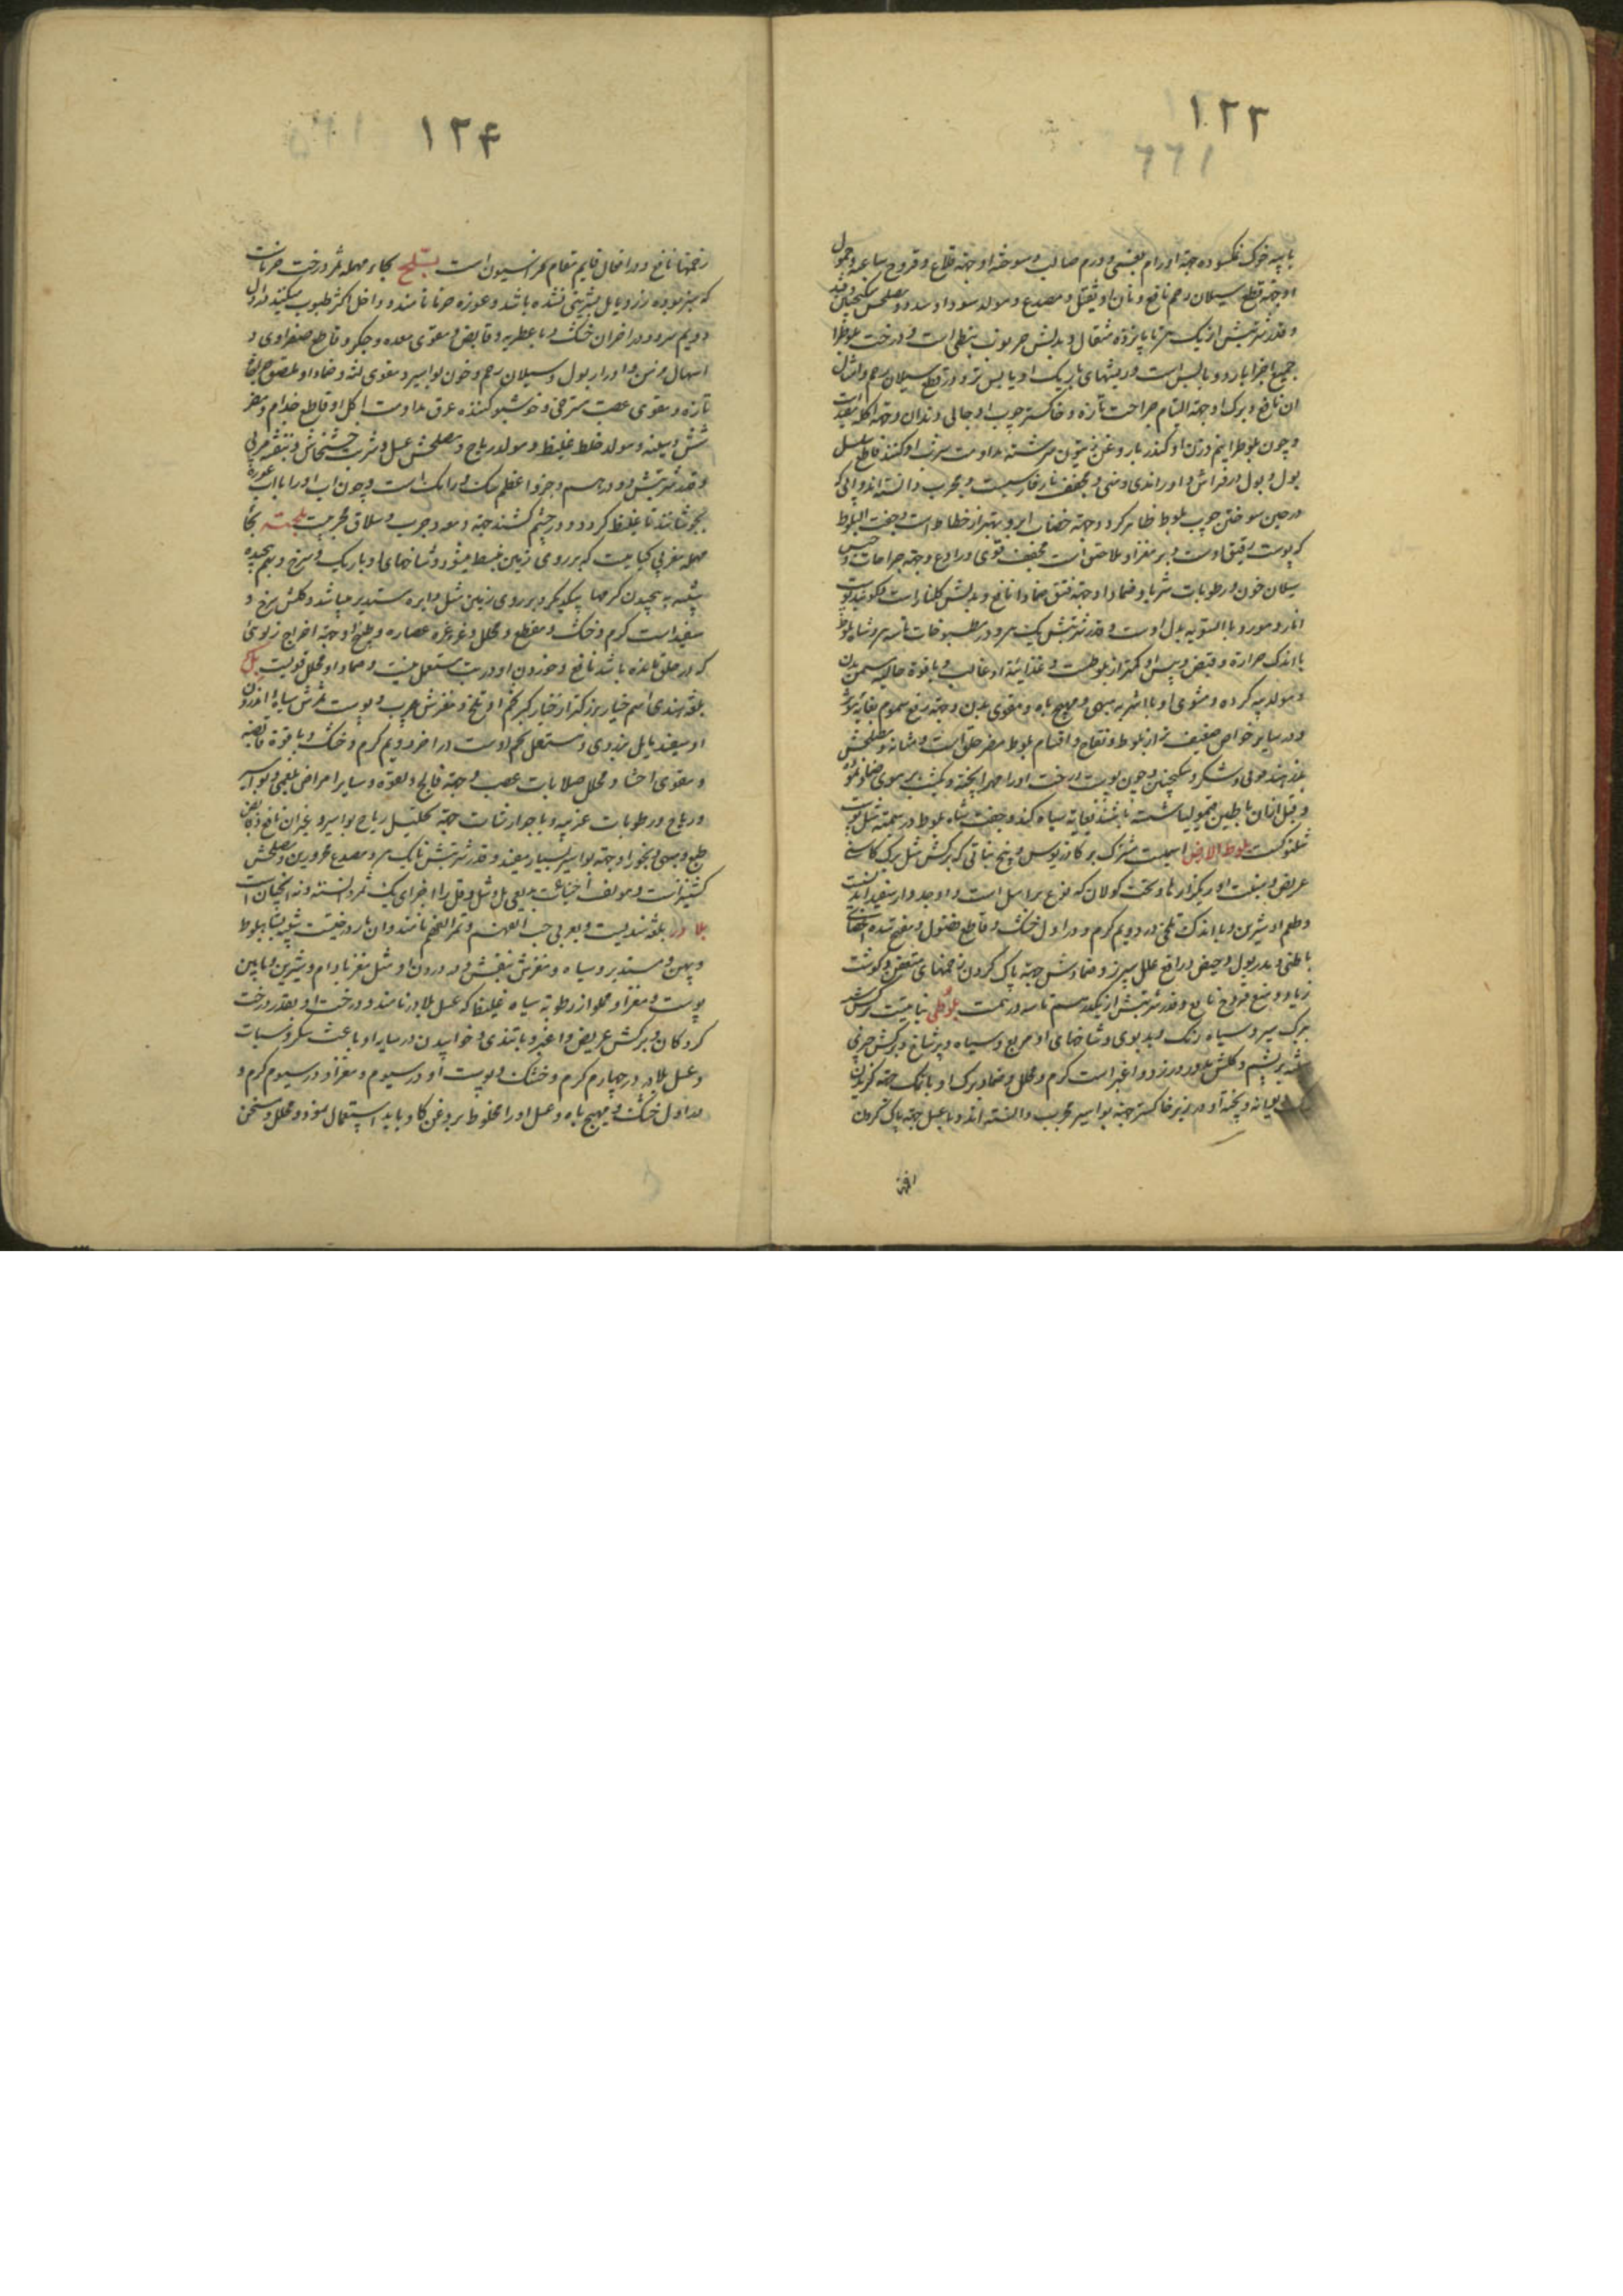 ١٢٣
١٦٦
با پیه خوک نمکسوده جهة اورام بنفسی و ورم صالب و سوخته او جهة قلاع و قروح ساعیه و حمول
او جهة قطع سیلان رحم نافع و نان او ثقیل و مصدع و مولد سودا و سدد و مصلحش سکنجبین و قند
و قدر شربتش از یک تا پانزده مثقال و بدلش خرنوب نبطی است و درخت بلوط را
جمیع اجزا بارد و یابس است و ریشهای باریک او یابس تر و در قطع سیلان رحم و امثال
ان نافع و برک او جهة التیام جراحت تازه و خاکستر چوب او جالی دندان و جهة اکله
و چون بلوط را بنیم وزن او کندر با روغن زیتون سرشته مداومت شرب او کنند قاطع سلس
بول و بول در فراش و ادرار مذی و منی و مجفف و مجرب دانسته اند و ابی که
در حین سوختن چوب بلوط ظاهر کردد جهة خضاب ابرو بهتر از خطاط است و جفت البلوط
که پوست رقیق اوست و بر مغز او ملاصق است مجفف قوی و رادع و جهة جراحات و حبس
سیلان خون و رطوبات شربا و ضمادا و جهة فتق ضمادا نافع و بدلش کلنار است و کویند پوست
انار و مورد بالسویه بدل اوست و قدر شربتش یک و در مطبوخات تا سه و شاه بلوط
با اندک حرارة و قبض و یبس او کمتر از بلوطست و غذائیة او غالب و با قوة جالیه مسمن بدن
و مولد پیه کرده و مشوی او با شکر مبهی و مهیج باه و مقوی بدن و جهة رفع سموم بغایة مؤثر
و در سایر خواص ضعیف تر از بلوط و نفاخ و اقسام بلوط مضر حلق است و مثانه و مصلحش
و شکر و سکنجبین و چون پوست درخت اورا مهرا پخته و یکشب بر موی ضماد نموده
و قبل از ان با طین قیمولیا شسته باشند بغایة سیاه کند و جفت شاه بلوط در تتمه مثل پوست
شلتوکست بلوط الارض اسمیست مشترک بر کمادریوس و بیخ نباتی که برکش مثل برک کاسنی
عریض و منبت او ریکزارها و تحت کولان که نوع براسل است و او جدوار سفید اند نیست
و طعم او شیرین و با اندک تلخی در دویم کرم و در اول خشک و قاطع فضول و مفتح سده احشای
باطنی و مدر بول و حیض و رافع علل سپرز و ضمادش جهة پاک کردن زخمهای متعفن و کوشت
زیاد و منع قروح نافع و قدر شربتش از یکدرهم تا سه درهمست بلوطی نباتیست برکش شبیه
ببرک سیر و سیاه رنک و بدبوی و شاخهای او مربع و سیاه و پرشاخ و برکش حرفی
شبیه به پشم و کلش مدور و زرد و اغبر است کرم و محلل و ضماد برک او با نمک جهة کزیدن
سک دیوانه و پخته او در زیر خاکستر جهة بواسیر مجرب دانسته اند و با عسل جهة پاک کردن
١٢۴
زخمها نافع و در افعال قایم مقام فراسیون است بلح بحاء مهمله ثمر درخت خرماست
که سبز بوده زرد و مایل بشیرینی نشده باشد و غوره خرما نامند و داخل اکثر طیوب میکنند در اول
دویم سرد و در اخر ان خشک و با عطریه و قابض و مقوی معده و جکر و قاطع صفراوی و
اسهال مزمن و ادرار بول و سیلان رحم و خون بواسیر و مقوی لثه و ضماد او ملصق جراحات
تازه و مقوی عصب مسترخی و خوشبو کننده عرق مداومت اکل او قاطع جذام و مضر
شش و سینه و مولد خلط غلیظ و مولد ریاح و مصلحش عسل و شربت خشخاش و بنفشه مربی
و قدر شربتش ده درهم و جزو اعظم سک و رامک است و چون اب اورا با اب غوره
بجوشانند تا غلیظ کردد و در چشم کشند جهة دمعه و جرب و سلاق مجربیست بلجیته بحاء
مهمله مغربی کیاهیست که بر روی زمین منبسط میشود و شاخهای او باریک و سرخ و بهم پیچیده
شبیه به پیچیدن کرمها بیکدیکر و بر روی زمین مثل دایره مستدیر میباشد و کلش سرخ و
سفید است کرم و خشک و مقطع و محلل و غرغره عصاره و طبیخ او جهة اخراج زلوئی
که در حلق مانده باشد نافع و خوردن او درست مستعمل نیست و ضماد او محلل قویست بل
بلغة هندی اسم خیار بزرکتر از خیار کبر و تخم او تلخ و مغزش چرب و پوست ثمرش سیاه و اندرون
او سفید مایل بزردی و مستعمل تخم اوست در اخر دویم کرم و خشک و با قوة قابضه
و مقوی احشا و محلل صلابات عصب و جهة فالج و لقوه و سایر امراض بلغمی و بواسیر
و ریاح و رطوبات غریبه و با جوارشات جهة تحلیل ریاح بواسیر و غیر ان نافع و قابض
طبع و مبهی و بخور او جهة بواسیر بسیار مفید و قدر شربتش تا یک و مصدع محرورین و مصلحش
کشنیز است و مولف اختیارات بدیعی بل و شل و فل را اجزای یک ثمر دانسته و نه انچنان است
بلادر بلغة هندیست و بعربی حب الفهم و ثمر الفهم نامند و ان بار درختیست شبیه بشاه بلوط
و پهن و مستدیر و سیاه و مغزش بنفش و در درون او مثل مغز بادام و شیرین و مابین
پوست و مغز او مملو از رطوبة سیاه غلیظ که عسل بلادر نامند و درخت او بقدر درخت
کردکان و برکش عریض و اغبر و با تندی و خوابیدن در سایه او باعث سکر و سبات
و عسل بلادر در چهارم کرم و خشک و پوست او در سیوم و مغز او در سیوم کرم و
در اول خشک و مهیج باه و عسل اورا مخلوط بروغن کاو باید استعمال نمود و محلل و مسخن